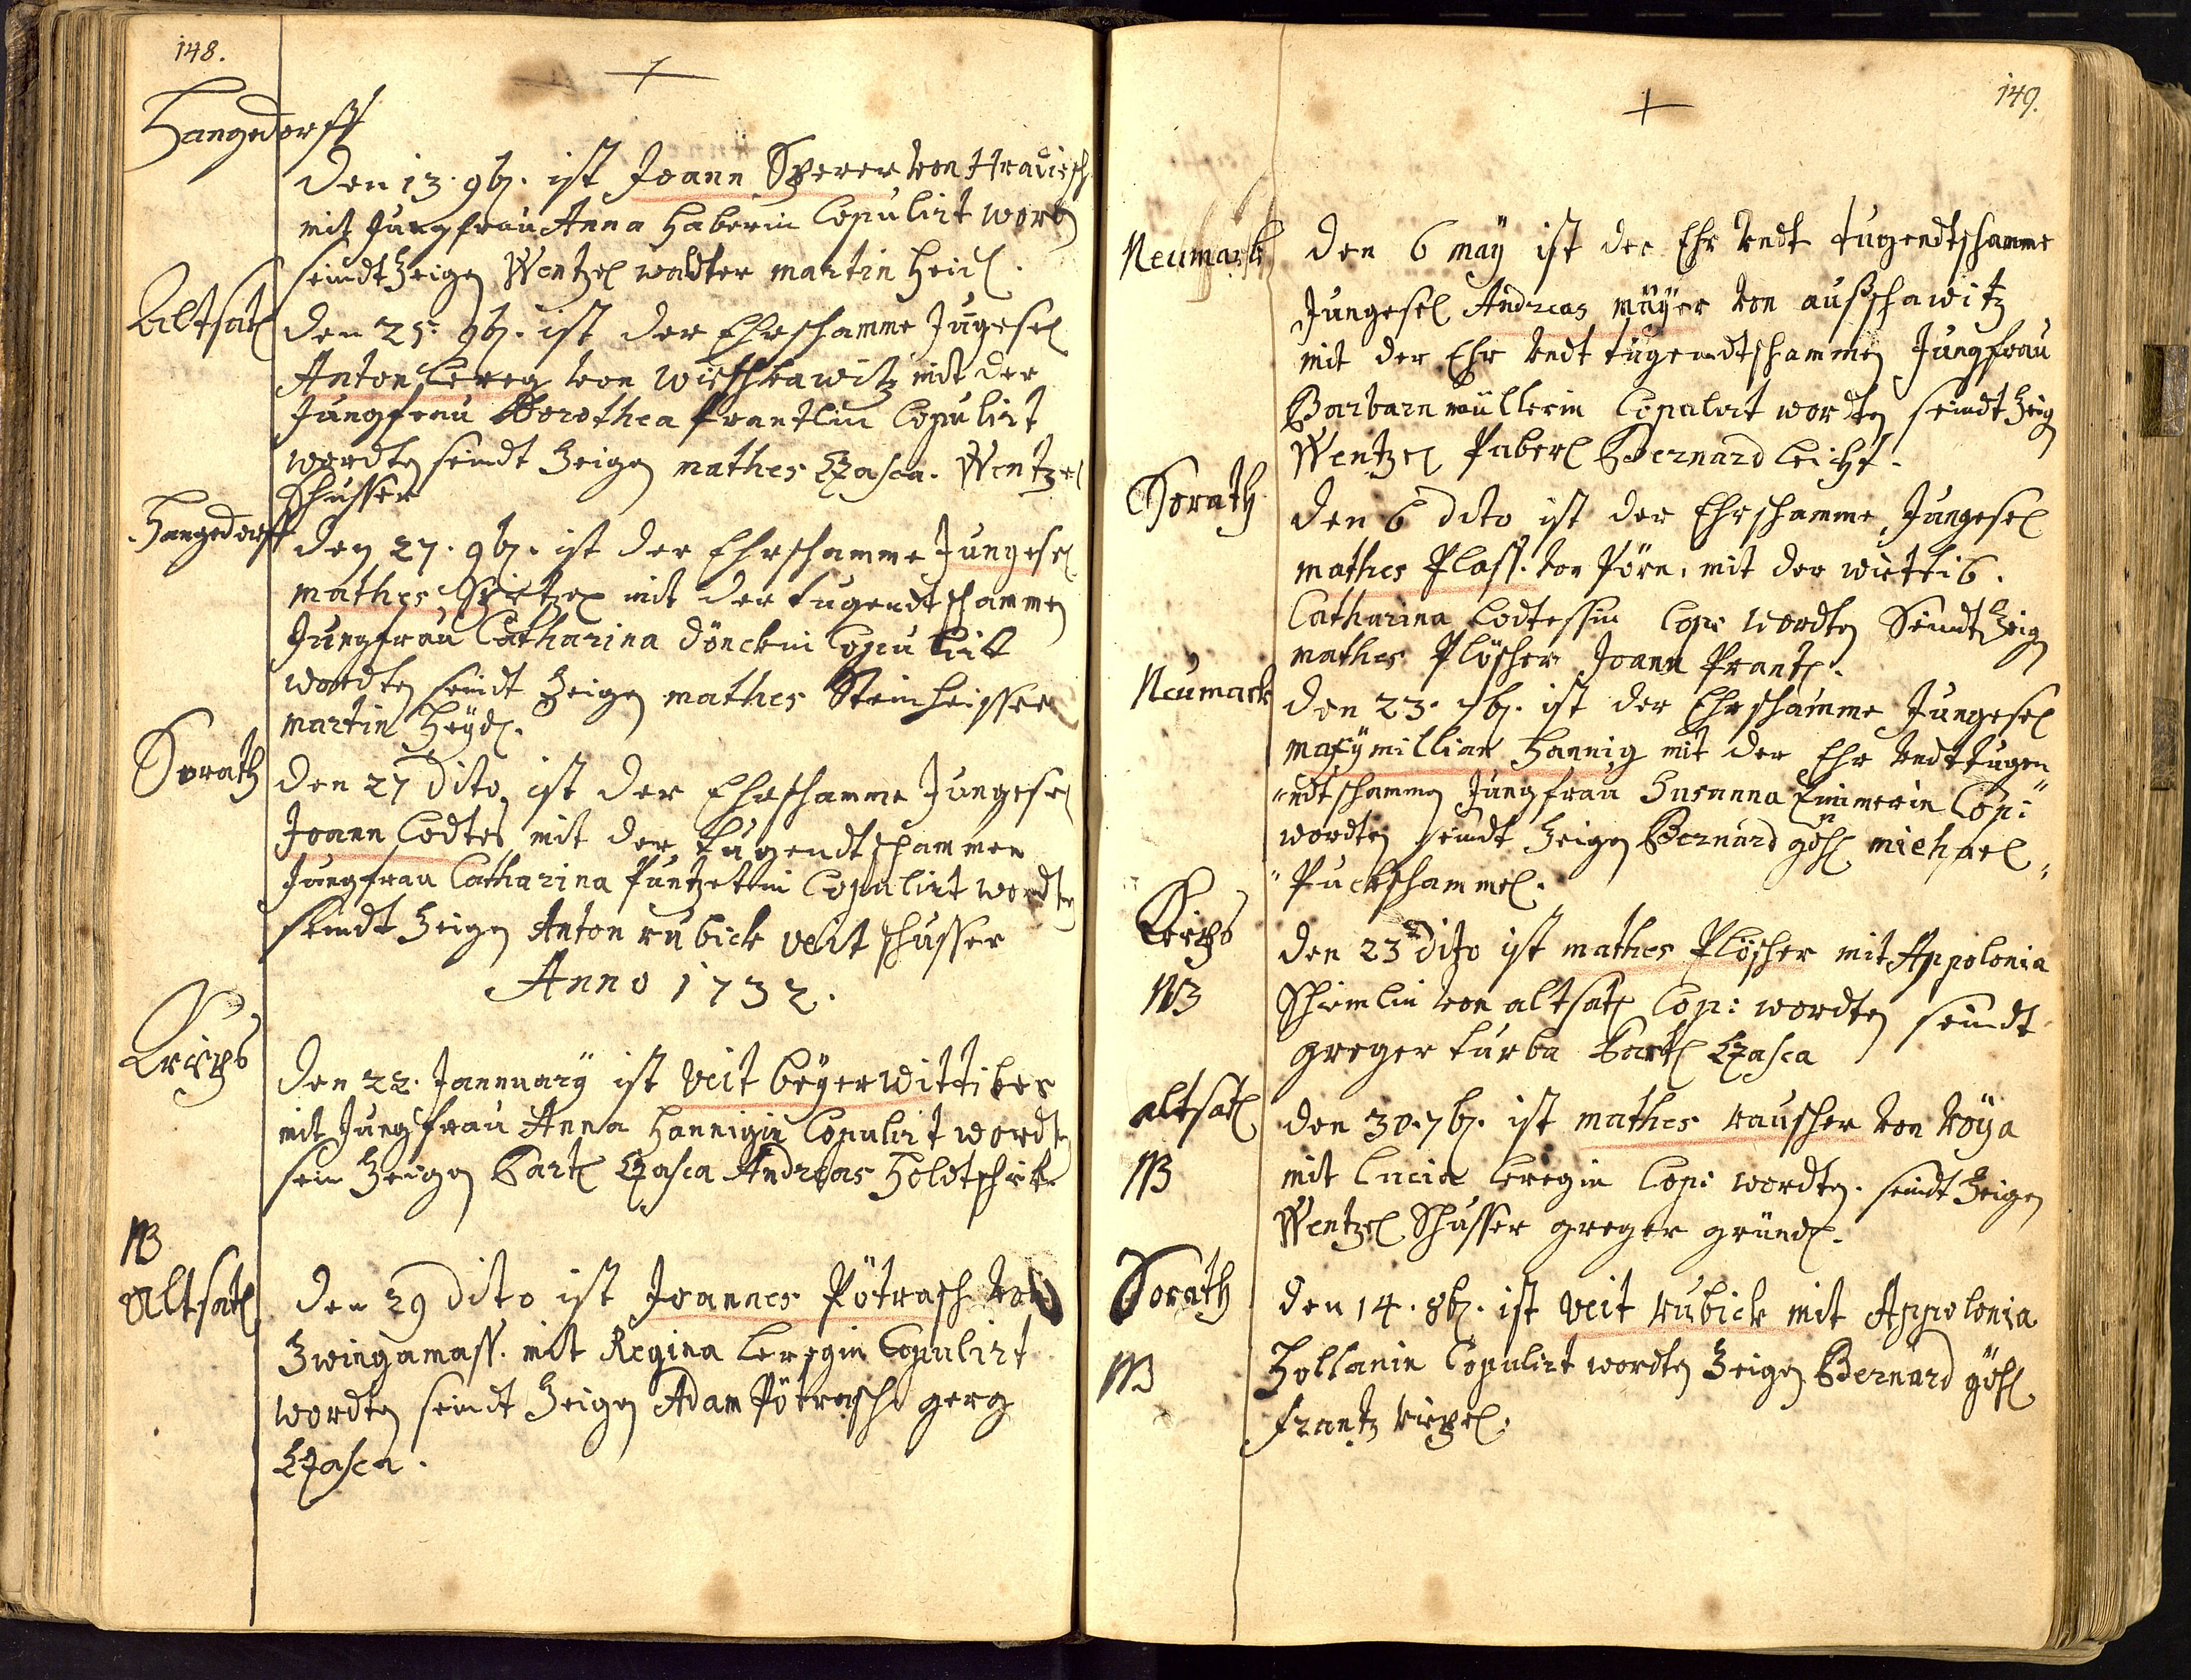 148.
Hangedorff
Den 13. 9bʒ. ist Joann Sperer von Hrauisch
mit Jungfrau Anna Haberin Copulirt wordñ
seindt Zeigen Wentzel wadter martin Heidl.
Altsatl
den 25. 9bʒ. ist der Ehrschamme Jūgesel
Anton Lereg von Wischkawitz mit der
Jungfrau Dorothea Prantlin Copulirt
wordten seindt Zeigen mathes Czasca. Wentzel
Schusser
Hangedorff
den 27. 9bʒ. ist der Ehrschamme Jungesel
mathes Spietzel mit der tugendtschammen
Jungfrau Catharina Dönckin Copulirt
wordten seindt Zeigen mathes Steinheisser
martin Heÿdl.
Dorath
den 27 dito ist der Ehrschamme Jungesel
Joann Lodtes mit der tugendtschammen
Jungfrau Catharina Puntzettin Copulirt wordten
seindt Zeigen Anton rubick veit schusser
Anno 1732.
Kriips
den 22. Jannuarÿ ist veit beÿer wittiber
mit Jungfrau Anna Hannigin Copulirt wordten
sein Zeigen Bartl Czasca Andreas Holdtschik
NB
Altsatl
den 29 dito ist Joannes Pötrasch von
Zwingamass. mit Regina Leregin Copulirt
wordten seindt Zeigen Adam Pötrasch gerg
Czasca.
149.
Neumark
den 6 maÿ ist der Ehr vndt tugendtschamme
Jungesel Andreas maÿer von ausschawitz
mit der Ehr vndt tugendtschammen Jungfrau
Barbara müllerin Copulirt wordten seindt Zeigen
Wentzel Paberl Bernard leicht.
Dorath
den 6 dito ist der Ehrschamme Jungesel
mathes Plass. von Pörn. mit der wittib.
Catharina Lodtessin Cop: wordten Seindt Zeigen
mathes Plöscher Joann Prantl.
Neumark
den 23. 7bʒ. ist der Ehrschamme Jungesel
maxÿmillian Hannig mit der Ehr vndt tugen
"ndtschammen Jungfrau Susanna Zimmerin Cop:"
wordten seindt Zeigen Bernard göhl michael "
"Puckschammel.
Kriips
NB
den 23 dito ist mathes Plöscher mit Appolonia
Schimlin von altsatl Cop: wordten seindt
greger turba Bartl Czasca
altsatl
NB
den 30. 7bʒ. ist mathes rauscher von röÿa
mit Lucia Leregin Cop: wordten. seindt Zeigen
Wentzel Schusser greger gründl.
Dorath
NB
den 14. 8bʒ. ist veit rubick mit Appolonia
Hollanin Copulirt wordten Zeigen Bernard göhl
frantz riepel.